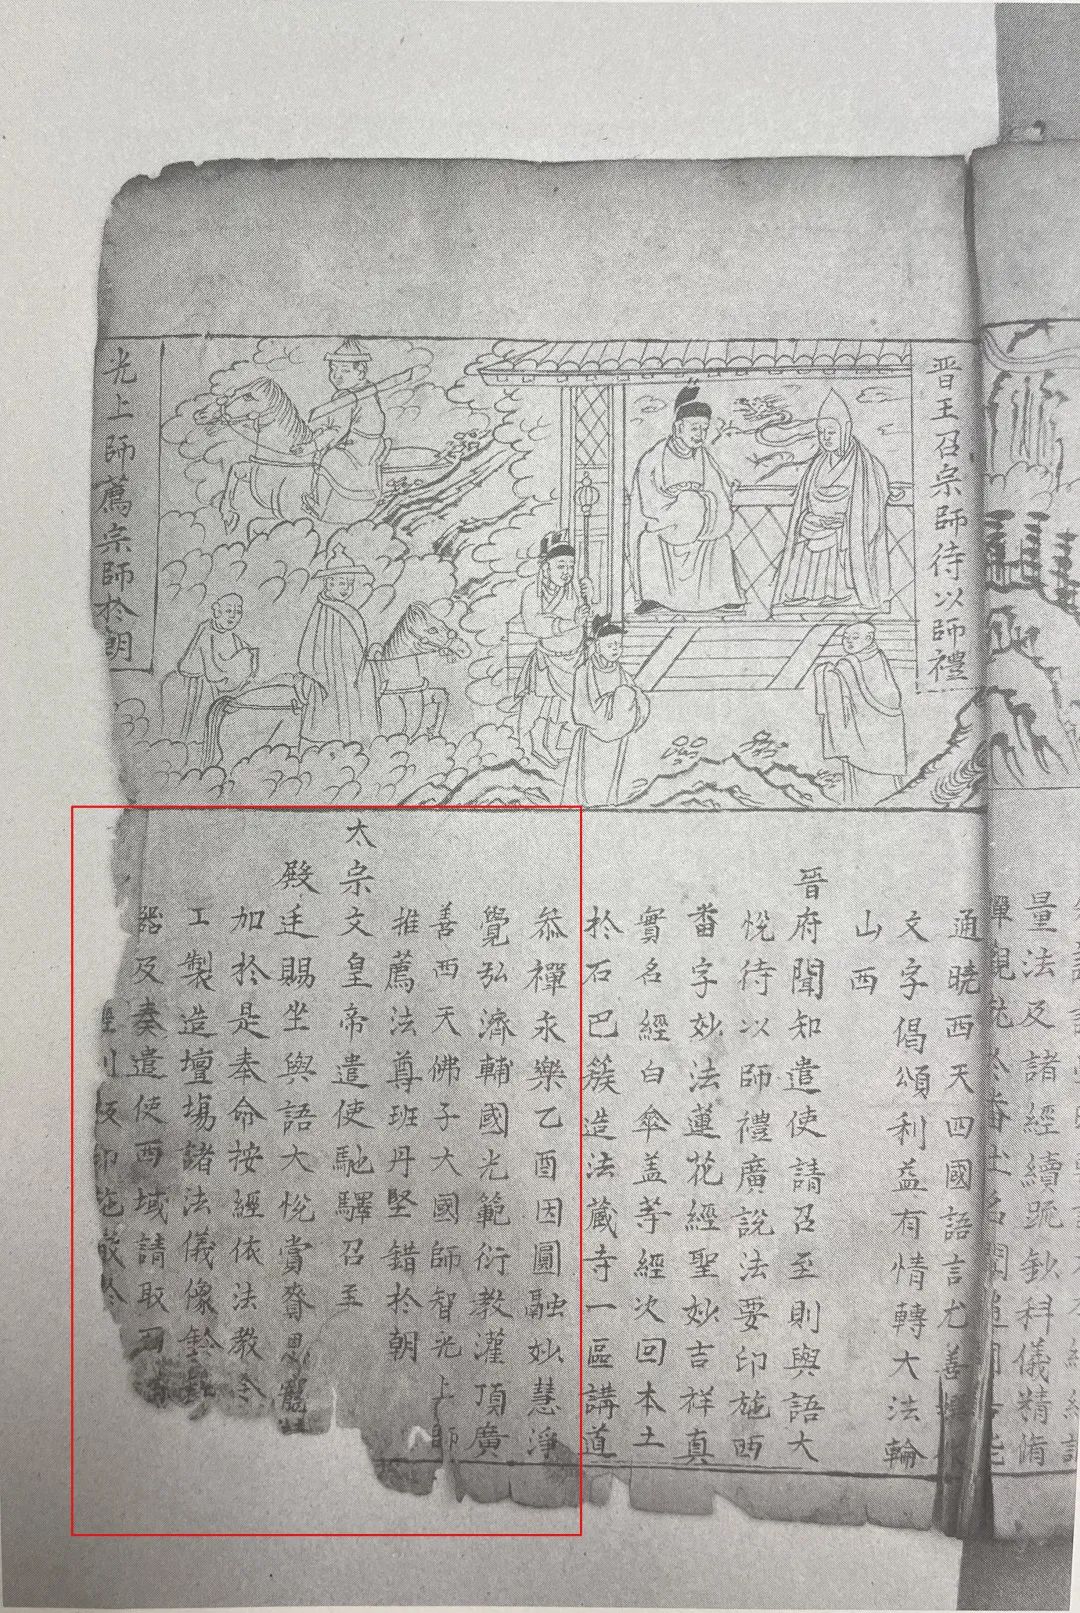 量法及諸經續䟽鈔科儀精脩
晋王召宗師待以師禮
光上師薦宗師扵朝
通曉西天四國語言尤善
文字偈頌利益有情轉大法輪
山西
晋府聞知遣使請召至則與語大
悅待以師禮廣說法要印施西
畨字妙法蓮花經聖妙吉祥真
實名經白傘盖等經次回本土
扵石巴簇造法藏寺一區講道
叅禪永樂乙酉因圓融妙慧淨
覺弘濟輔國光範衍教灌頂廣
善西天佛子大國師智光上師
推薦法尊班丹堅錯扵朝
太宗文皇帝遣使馳驛召至
殿廷賜坐與語大悅賞賚恩寵
加扵是奉命按經依法教令
工製造壇場諸法儀像鈴
器及奏遣使西域請取
印施散扵